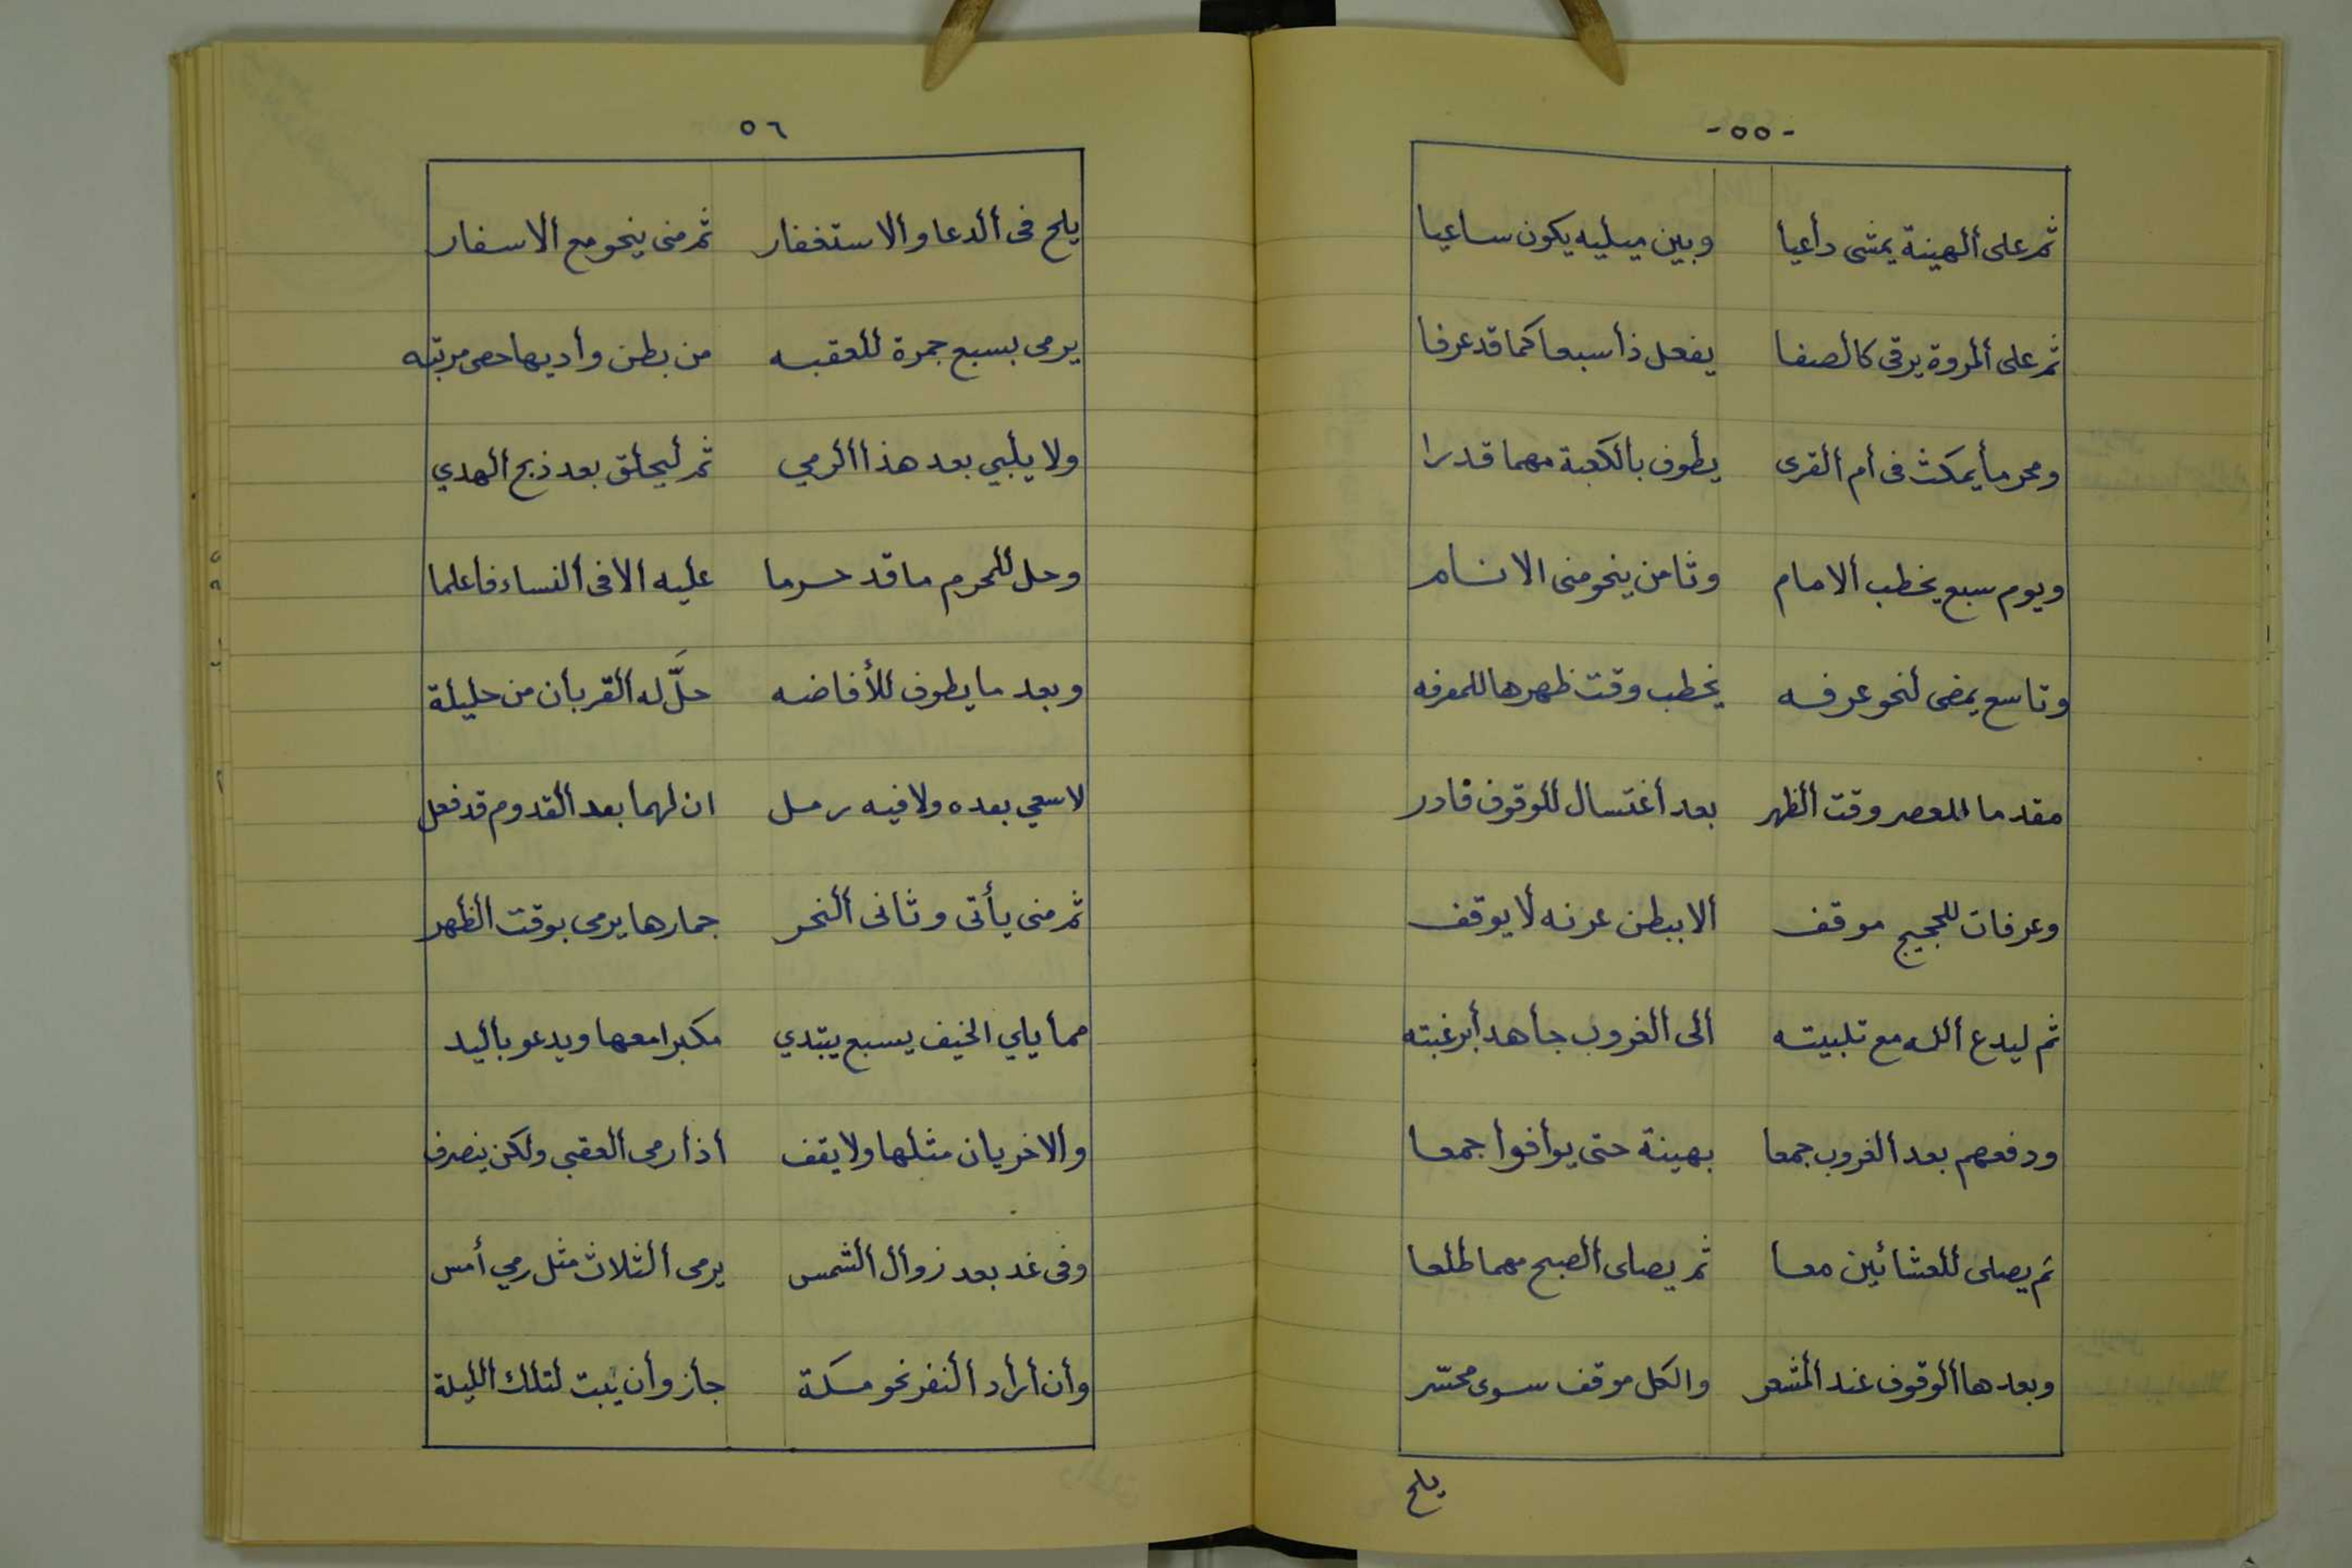 -٥٥-
ثم على ألهينة يمشى دأعيا وبين ميليه يكون ساعيا
ثم على ألمروة يرقى كالصفا يفعل ذأ سبعا كما قد عرفا
ومحرمأ يمكث فى أم ألقرى يطوف بالكعبة مهما قدرا
ويوم سبع يخطب ألامام وثامن ينحو منى الانام
وتاسع يمضى لنحو عرفه يخطب وقت ظهرها للمعرفه
مقدما للعصر وقت ألظهر بعد أغتسال للوقوف فادر
وعرفات للحجيج موقف ألا ببطن عرنه لا يوقف
ثم ليدع ألله مع تلبيته ألى ألغروب جأهدأ برغبته
ودفعهم بعد ألغروب جمعا بهينة حتى يوأفوأ جمعا
ثم يصلى للعشائين معا ثم يصلى ألصبح مهما طلعا
وبعدها ألوقوف عند ألمشعر والكل موقف سوى محسّر
يلح
٥٦
يلح فى ألدعا وألاستغفار ثم منى ينحو مع ألاسفار
يرمى بسبع جمرة للعقبه من بطن وأديها حصى مرتبه
ولا يلبي بعد هذا ألرمي ثم ليحلق بعد ذبح ألهدي
وحل للمحرم ما قد حرما عليه ألا فى ألنساء فاعلما
وبعد ما يطوف للأفاضه حلَّ له ألقربان من حليلة
لا سعي بعده ولا فيه رمل ان لهما بعد ألقدوم قد فعل
ثم منى يأتى وثانى ألنحر جمارها يرمى بوقت ألظهر
مما يلي الخيف بسبع يبتدي مكبرا معها ويدعو باليد
وألاخريان مثلها ولا يقف أذأ رمى ألعقبى ولكن ينصرف
وفى غد بعد زوأل ألشمس يرمى ألثلاث مثل رمي أمس
وأن أرأد ألنفر نحو مكة جأز وأن يبت لتلك ألليلة